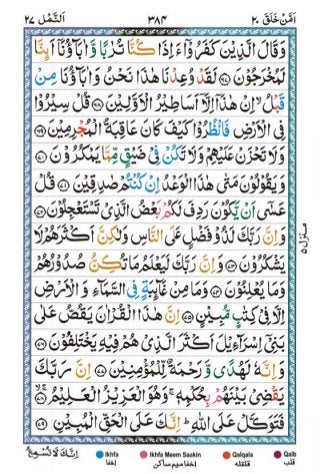 اَمَّنْ خَلَقَ ٢٠ ٣٨٤ اَلنَّمْل ٢٧
وَقَالَ الَّذِيْنَ كَفَرُوْۤا ءَاِذَا كُنَّا تُرٰبًا وَّاٰبَآؤُنَاۤ اَئِنَّا
لَمُخْرَجُوْنَ ﴿۶۷﴾ لَقَدْ وُعِدْنَا هٰذَا نَحْنُ وَاٰبَآؤُنَا مِنْ
قَبْلُ ۙ اِنْ هٰذَاۤ اِلَّاۤ اَسَاطِيْرُ الْاَوَّلِيْنَ ﴿۶۸﴾ قُلْ سِيْرُوْا
فِى الْاَرْضِ فَانْظُرُوْا كَيْفَ كَانَ عَاقِبَةُ الْمُجْرِمِيْنَ ﴿۶۹﴾
وَلَا تَحْزَنْ عَلَيْهِمْ وَلَا تَكُنْ فِىْ ضَيْقٍ مِّمَّا يَمْكُرُوْنَ ﴿۷۰﴾
وَيَقُوْلُوْنَ مَتٰى هٰذَا الْوَعْدُ اِنْ كُنْتُمْ صٰدِقِيْنَ ﴿۷۱﴾ قُلْ
عَسٰۤى اَنْ يَّكُوْنَ رَدِفَ لَكُمْ بَعْضُ الَّذِىْ تَسْتَعْجِلُوْنَ ﴿۷۲﴾
وَاِنَّ رَبَّكَ لَذُوْ فَضْلٍ عَلَى النَّاسِ وَلٰكِنَّ اَكْثَرَهُمْ لَا
يَشْكُرُوْنَ ﴿۷۳﴾ وَاِنَّ رَبَّكَ لَيَعْلَمُ مَا تُكِنُّ صُدُوْرُهُمْ
وَمَا يُعْلِنُوْنَ ﴿۷۴﴾ وَمَا مِنْ غَآئِبَةٍ فِى السَّمَآءِ وَ الْاَرْضِ
اِلَّا فِىْ كِتٰبٍ مُّبِيْنٍ ﴿۷۵﴾ اِنَّ هٰذَا الْقُرْاٰنَ يَقُصُّ عَلٰى
بَنِىْۤ اِسْرَآءِيْلَ اَكْثَرَ الَّذِىْ هُمْ فِيْهِ يَخْتَلِفُوْنَ ﴿۷۶﴾
وَاِنَّهٗ لَهُدًى وَّ رَحْمَةٌ لِّلْمُؤْمِنِيْنَ ﴿۷۷﴾ اِنَّ رَبَّكَ
يَقْضِىْ بَيْنَهُمْ بِحُكْمِهٖ ۚ وَهُوَ الْعَزِيْزُ الْعَلِيْمُ ﴿۷۸﴾
فَتَوَكَّلْ عَلَى اللّٰهِ ؕ اِنَّكَ عَلَى الْحَقِّ الْمُبِيْنِ ﴿۷۹﴾
منزل ۵
اِنَّكَ لَا تُسْمِعُ
Ikhfa اخفا
Ikhfa Meem Saakin اخفا میم ساکن
Qalqala قلقله
Qalb قلب